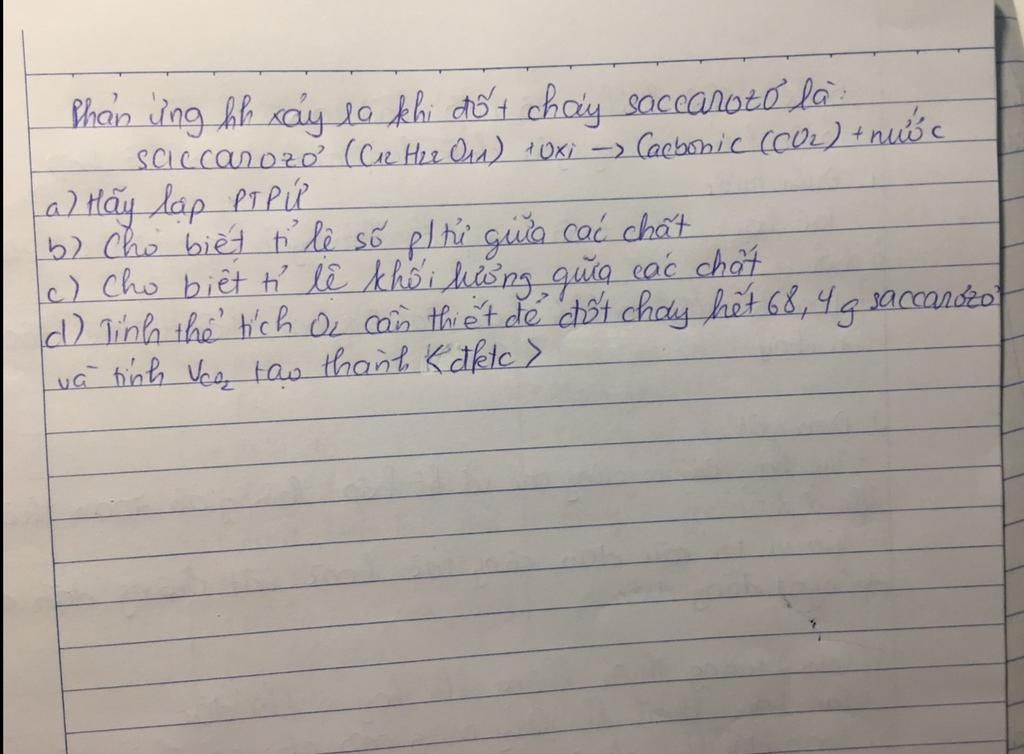 Phản ứng hh xảy ra khi đốt cháy saccarozơ là:
saccarozơ (C12H22O11) + oxi → Cacbonic (CO2) + nước
a) Hãy lập PTPỨ
b) Cho biết tỉ lệ số p/tử giữa các chất
c) Cho biết tỉ lệ khối lượng giữa các chất
d) Tính thể tích O2 cần thiết để đốt cháy hết 68,4g saccarozơ
và tính VCO2 tạo thành <đktc>